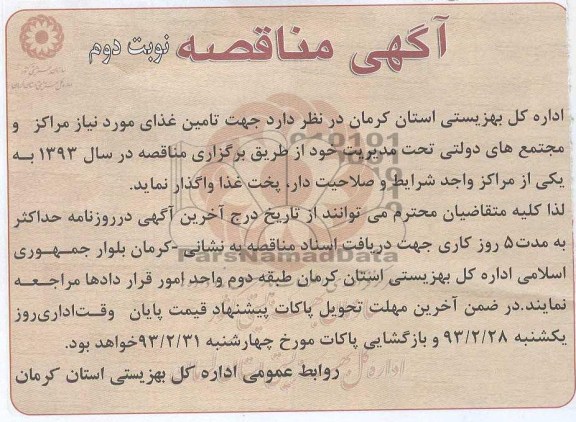 آگهی مناقصه نوبت دوم
اداره کل بهزیستی استان کرمان در نظر دارد جهت تامین غذای مورد نیاز مراکز و
مجتمع های دولتی تحت مدیریت خود از طریق برگزاری مناقصه در سال ۱۳۹۳ به
یکی از مراکز واجد شرایط و صلاحیت دار، پخت غذا واگذار نماید.
لذا کلیه متقاضیان محترم می توانند از تاریخ درج آخرین آگهی درروزنامه حداکثر
به مدت۵ روز کاری جهت دریافت اسناد مناقصه به نشانی -کرمان بلوار جمهوری
اسلامی اداره کل بهزیستی استان کرمان طبقه دوم واحد امور قرار دادها مراجعه
نمایند.در ضمن آخرین مهلت تحویل پاکات پیشنهاد قیمت پایان وقت‌اداری‌روز
یکشنبه ۹۳/۲/۲۸ و بازگشایی پاکات مورخ چهارشنبه ۹۳/۲/۳۱خواهد بود.
روابط عمومی اداره کل بهزیستی استان کرمان
ParsNamadData